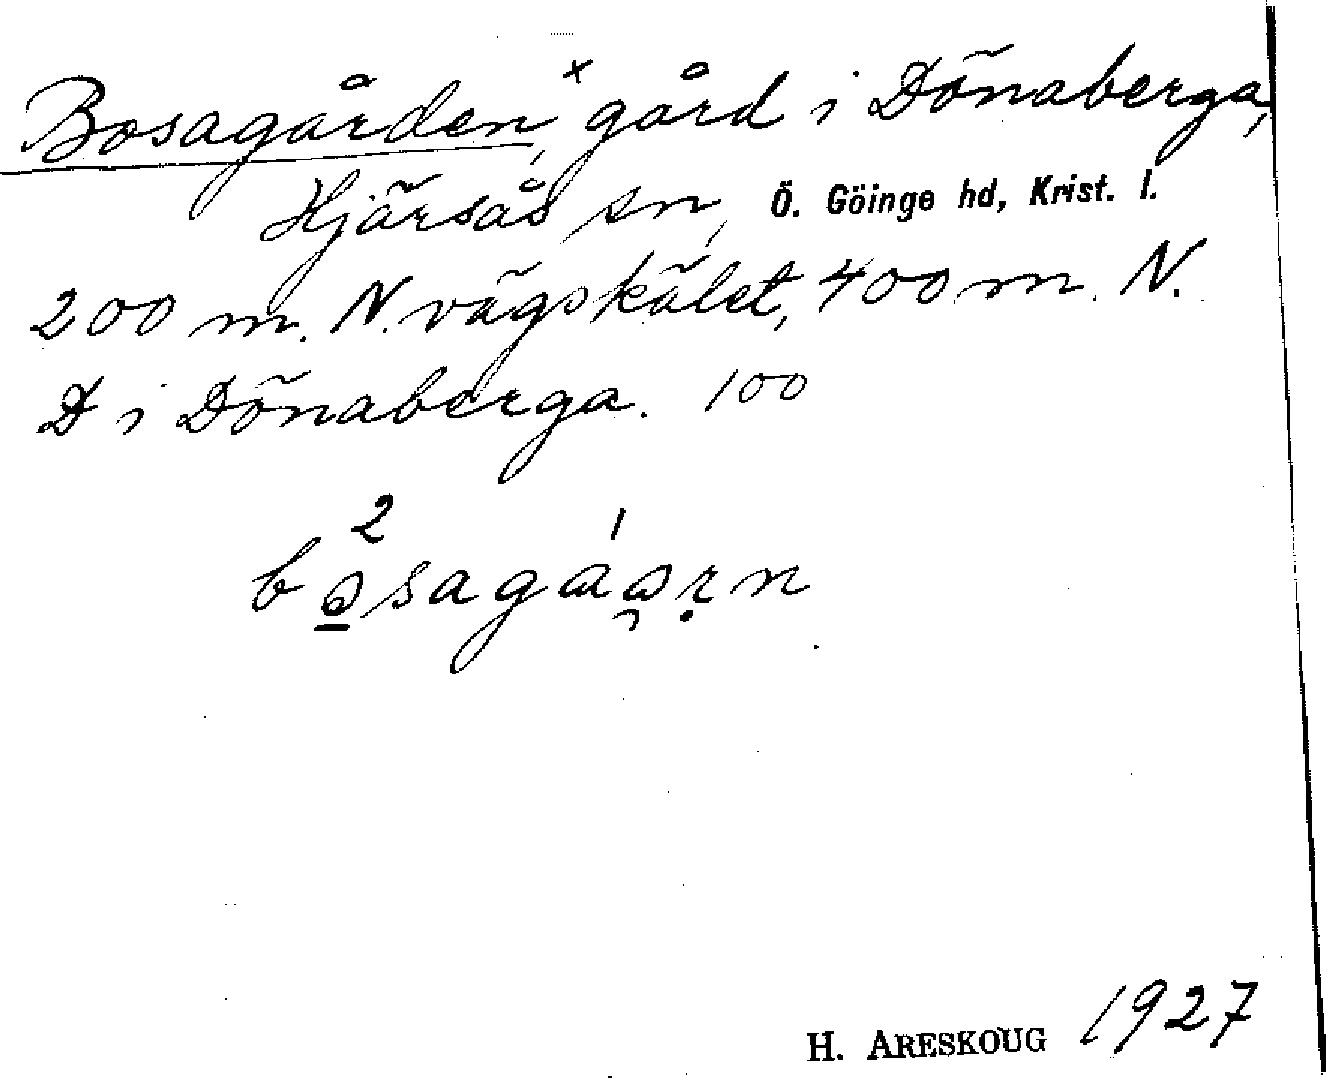 Bosagården,ˣ gård i Dönaberga,
Hjärsås sn, Ö. Göinge hd, Krist. l.
200 m. N. vägskälet, 400 m. N.
D i Dönaberga. 100
H. ARESKOUG 1927